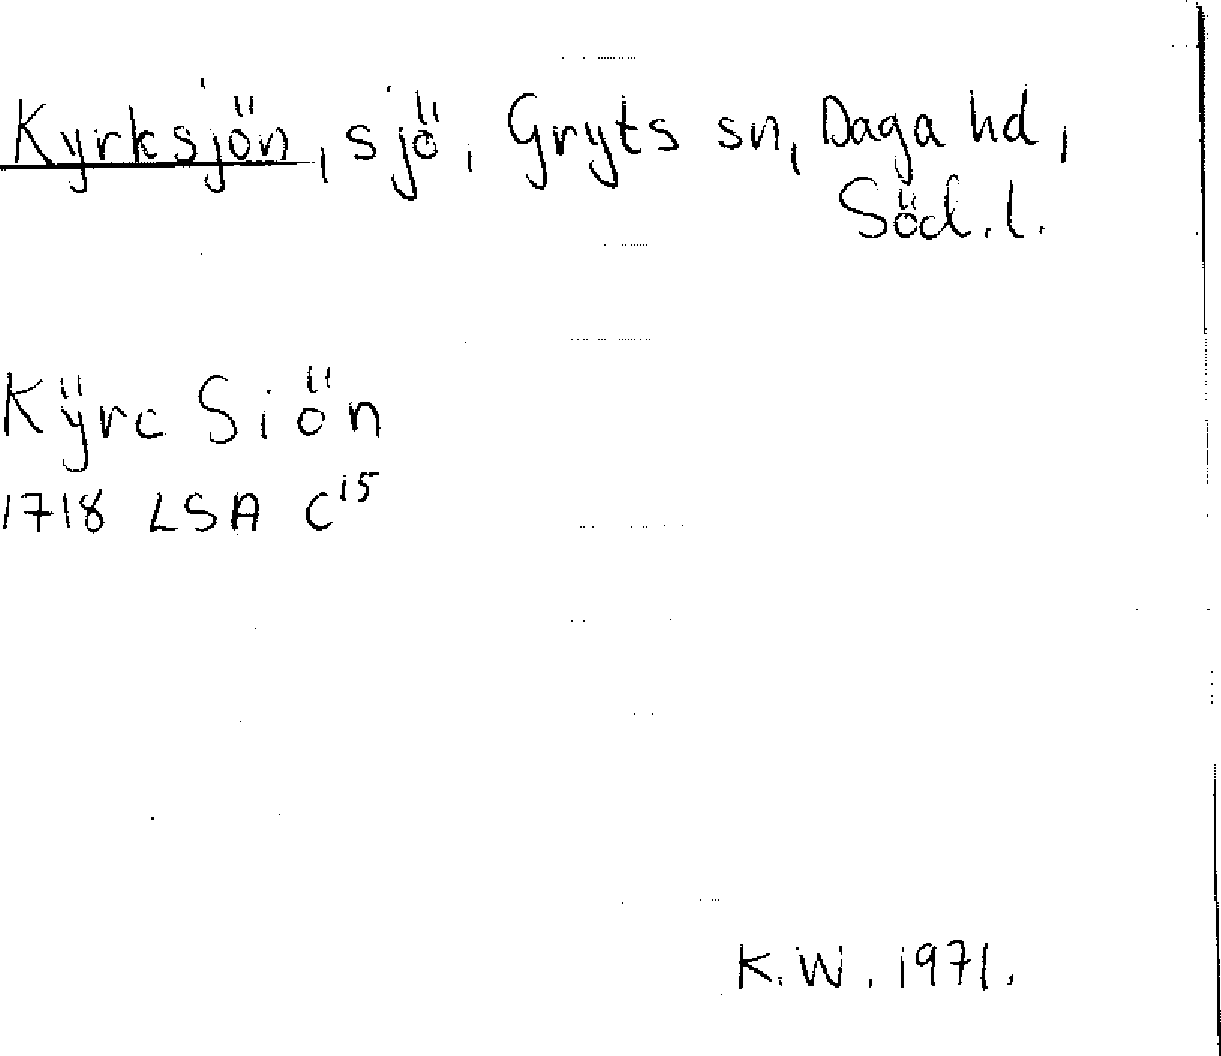 Kyrksjön, sjö, Gryts sn, Daga hd,
Söd. l.
Kÿrc Siön
1718 LSA C¹⁵
K.W. 1971.